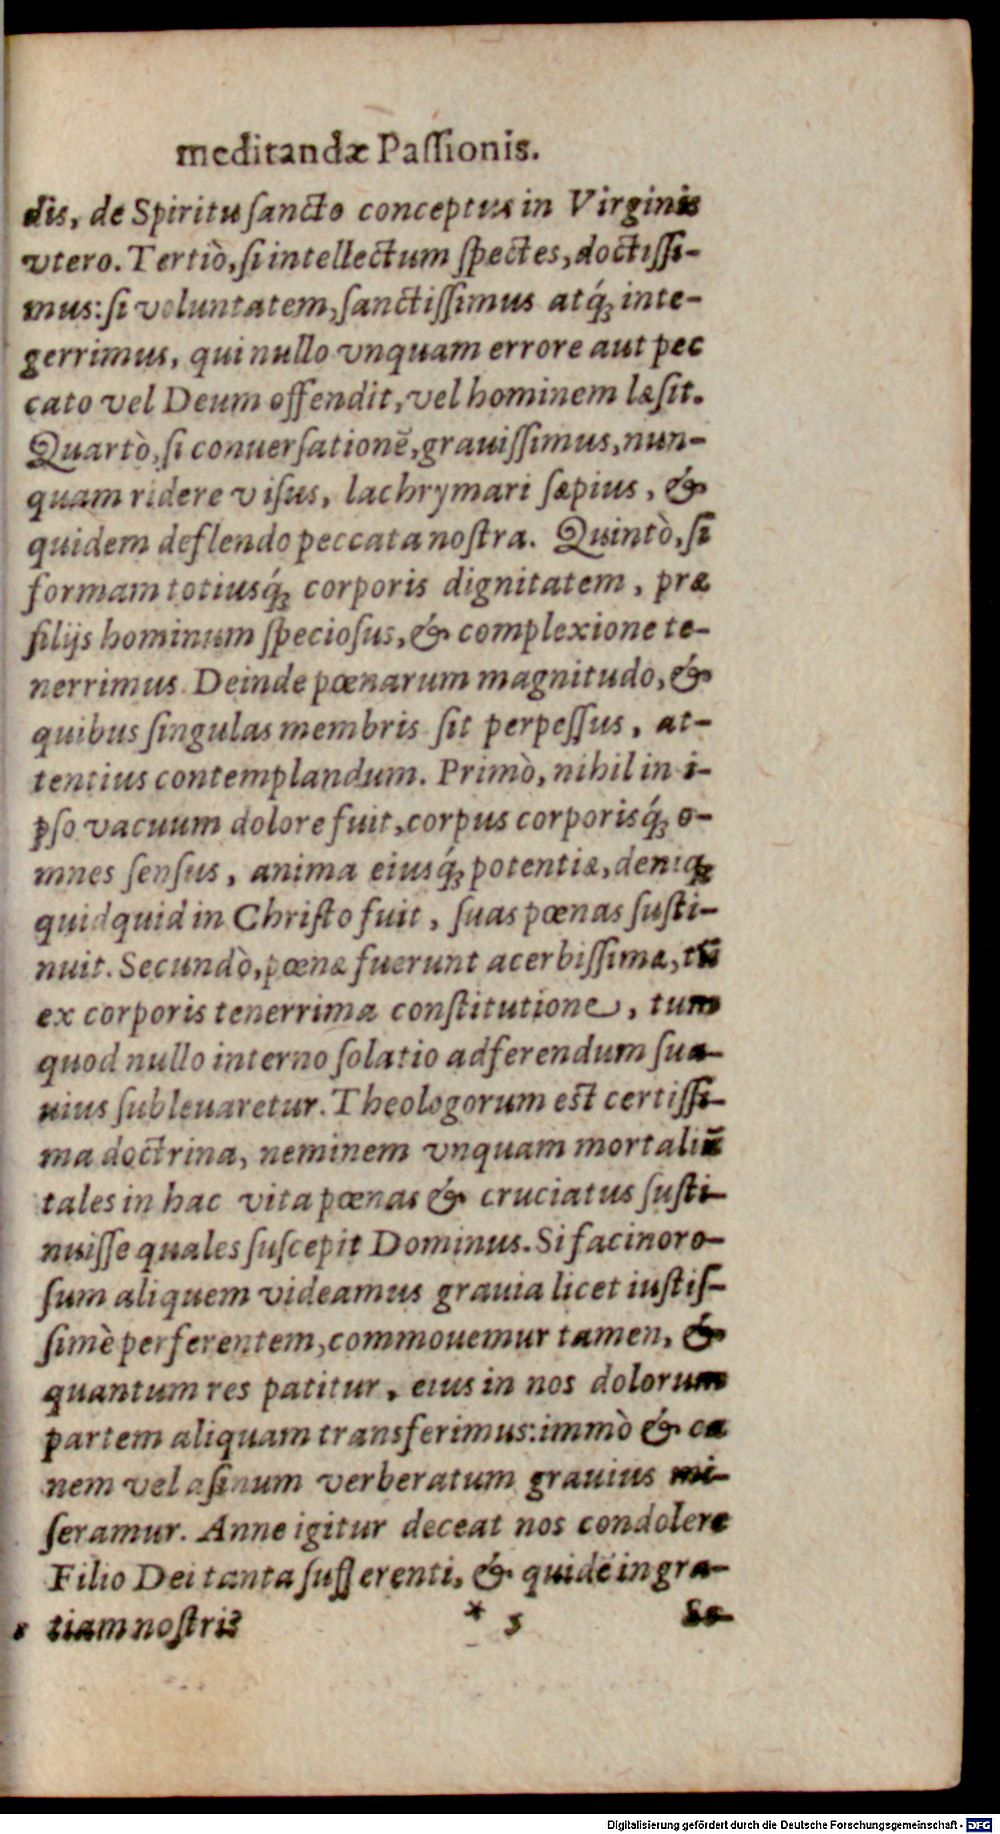 meditandæ Paſſionis.
dis, de Spiritu ſancto conceptus in Virginis
vtero. Tertiò, ſi intellectum ſpectes, doctiſſi-
mus: ſi voluntatem, ſanctiſſimus atq́; inte-
gerrimus, qui nullo vnquam errore aut pec
cato vel Deum offendit, vel hominem læſit.
Quartò, ſi conuerſationē, grauiſſimus, nun-
quam ridere viſus, lachrymari ſæpius, &
quidem deflendo peccata noſtra. Quintò, ſi
formam totiusq́; corporis dignitatem, præ
filijs hominum ſpecioſus, & complexione te-
nerrimus. Deinde pœnarum magnitudo, &
quibus ſingulas membris ſit perpeſſus, at-
tentius contemplandum. Primò, nihil in i-
pſo vacuum dolore fuit, corpus corporisq́; o-
mnes ſenſus, anima eiusq́; potentiæ, deniq;
quidquid in Chriſto fuit, ſuas pœnas ſuſti-
nuit. Secundò, pœnæ fuerunt acerbiſſimæ, tū
ex corporis tenerrima conſtitutione, tum
quod nullo interno ſolatio adferendum ſua-
uius ſubleuaretur. Theologorum eſt certiſſi-
ma doctrina, neminem vnquam mortaliū
tales in hac vita pœnas & cruciatus ſuſti-
nuiſſe quales ſuſcepit Dominus. Si facinoro-
ſum aliquem videamus grauia licet iuſtiſ-
ſimè perferentem, commouemur tamen, &
quantum res patitur, eius in nos dolorum
partem aliquam transferimus: immò & ca
nem vel aſinum verberatum grauius mi-
ſeramur. Anne igitur deceat nos condolere
Filio Dei tanta ſufferenti, & quidē in gra-
tiam noſtri?
* 5
Se-
Digitalisierung gefördert durch die Deutsche Forschungsgemeinschaft - DFG